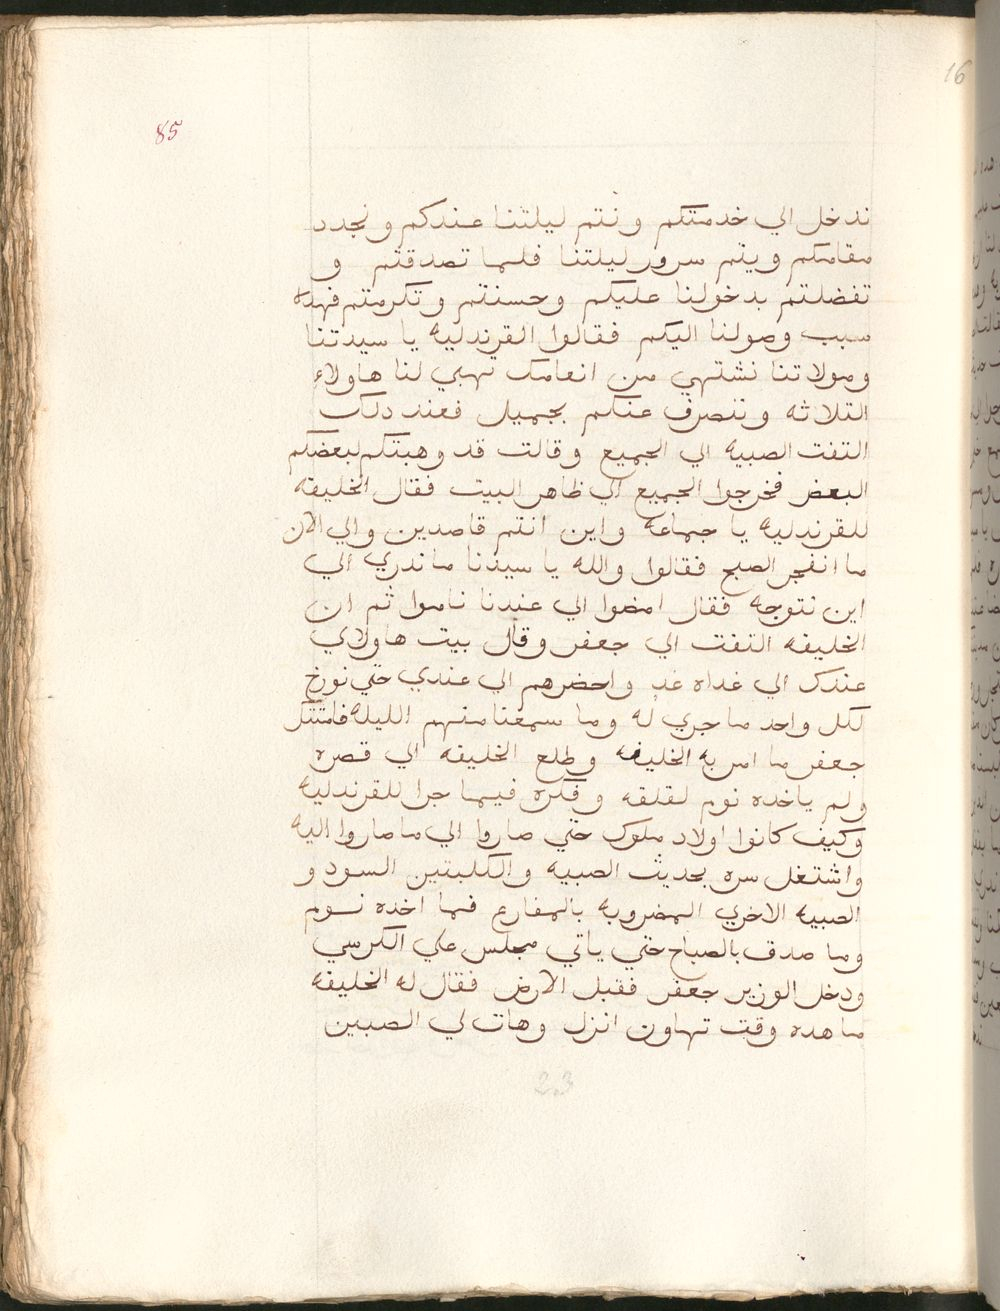 16
85
ندخل الي خدمتكم ونتم ليلتنا عندكم ونجدد
مقامكم ويتم سرور ليلتنا فلما تصدقتم و
تفضلتم بدخولنا عليكم وحسنتم وتكرمتم فهده
سبب وصولنا اليكم فقالوا القرندليه يا سيدتنا
ومولاتنا نشتهي من انعامك تهبي لنا هاولاء
التلاثه وننصرف عنكم بجميل فعند دلك
التفت الصبيه الي الجميع وقالت قد وهبتكم لبعضكم
البعض فخرجوا الجميع الي ظاهر البيت فقال الخليفه
للقرندليه يا جماعه واين انتم قاصدين والي الان
ما انفجر الصبح فقالوا والله يا سيدنا ما ندري الي
اين نتوجه فقال امضوا الي عندنا ناموا ثم ان
الخليفه التفت الي جعفر وقال بيت هاولاي
عندك الي غداه غد واحضرهم الي عندي حتي نورخ
لكل واحد ما جري له وما سمعنا منهم الليله فامتتل
جعفر ما امر به الخليفه وطلع الخليفه الي قصره
ولم ياخده نوم لقلقه وفكره فيما جرا للقرندليه
وكيف كانوا اولاد ملوك حتي صاروا الي ما صاروا اليه
واشتغل سره بحديث الصبيه والكلبتين السود و
الصبيه الاخري المضروبه بالمقارع فما اخده نوم
وما صدق بالصباح حتي ياتي مجلس علي الكرسي
ودخل الوزير جعفر فقبل الارض فقال له الخليفه
ما هده وقت تهاون انزل وهات لي الصبين
23